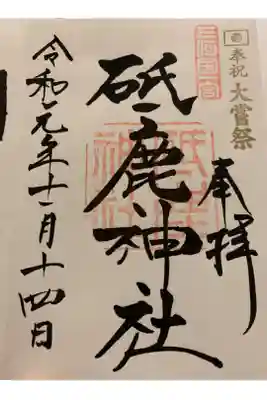 奉祝 大嘗祭
奉拝
三河國一宮
砥鹿神社
砥鹿神社
令和元年十一月十四日